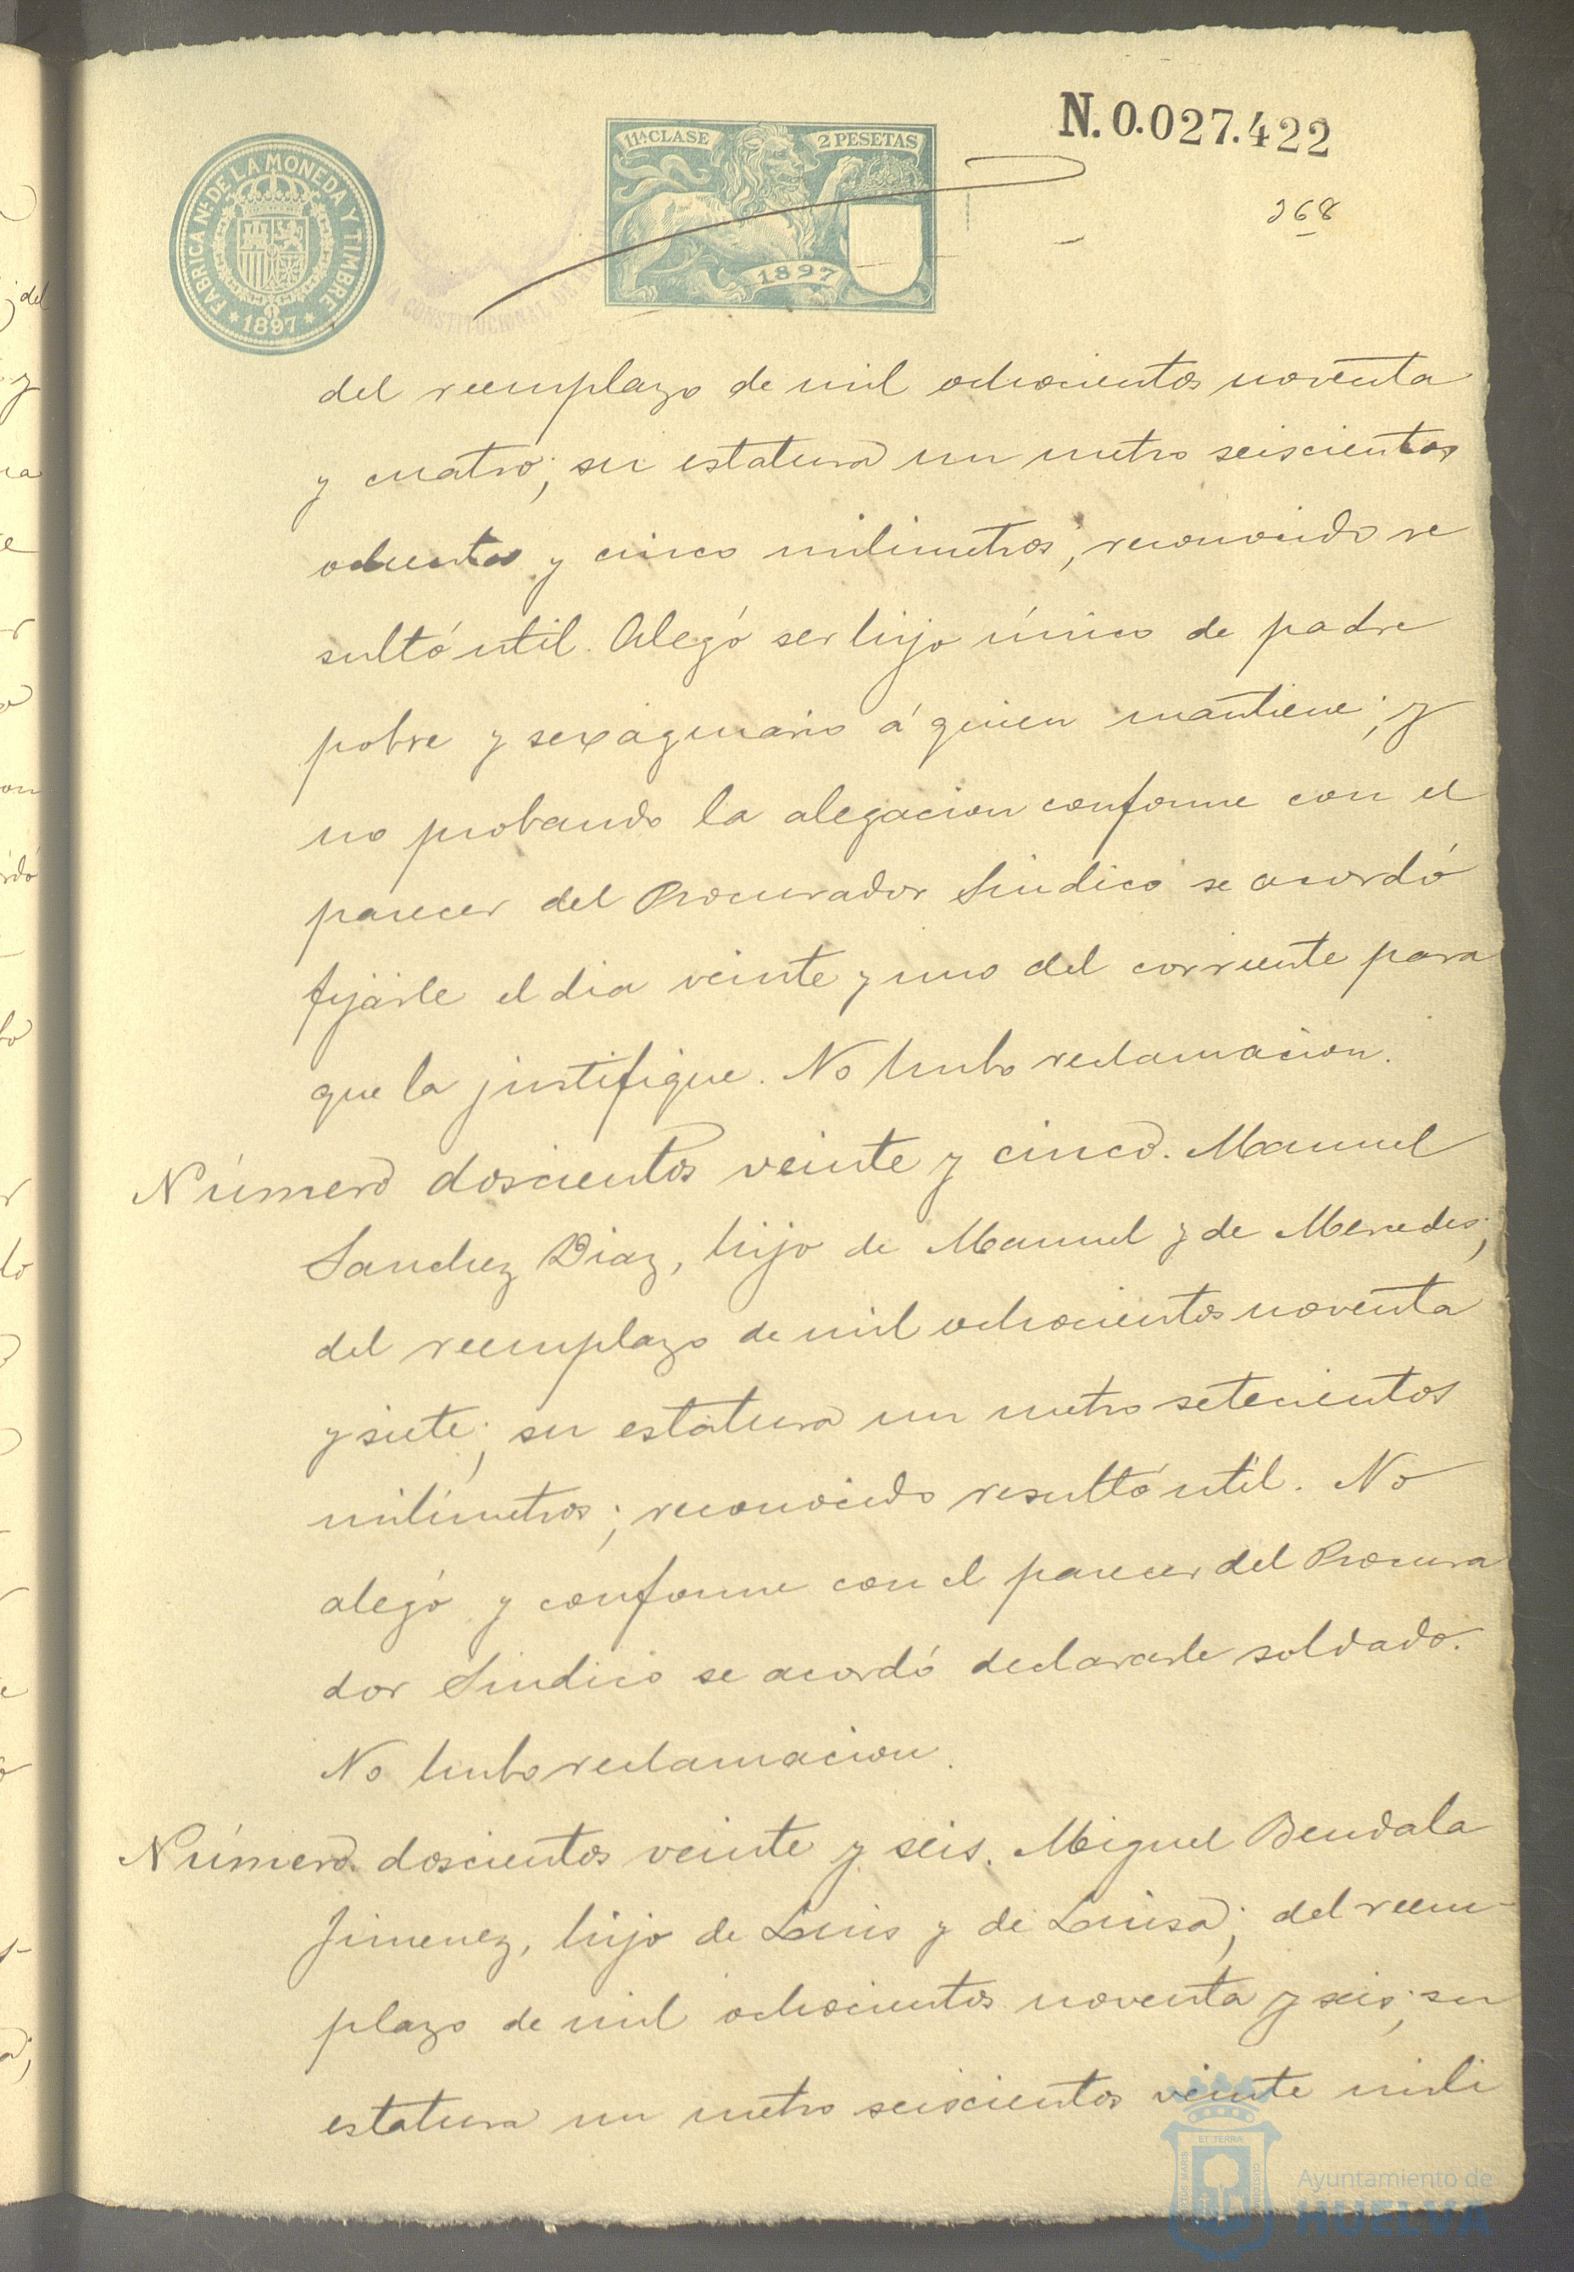 N. 0.027.422
11ª CLASE
2 PESETAS
FÁBRICA Nˡ DE LA MONEDA Y TIMBRE
1897
1897
CONSTITUCIONAL DE
268
del reemplazo de mil ochocientos noventa
y cuatro; su estatura un metro seiscientos
ochenta y cinco milimetros; reconocido re
sultó util. Alegó ser hijo único de padre
pobre y sexagenario á quien mantiene; y
no probando la alegacion conforme con el
parecer del Procurador Sindico se acordó
fijarle el dia veinte y uno del corriente para
que la justifique. No hubo reclamacion.
Número doscientos veinte y cinco. Manuel
Sanchez Diaz, hijo de Manuel y de Mercedes;
del reemplazo de mil ochocientos noventa
y siete; su estatura un metro setecientos
milímetros; reconocido resultó util. No
alegó y conforme con el parecer del Procura
dor Sindico se acordó declararle soldado.
No hubo reclamacion.
Número doscientos veinte y seis. Miguel Bendala
Jimenez, hijo de Luis y de Luisa; del reem-
plazo de mil ochocientos noventa y seis; su
estatura un metro seiscientos veinte mili
ET TERRA
Ayuntamiento de
HUELVA